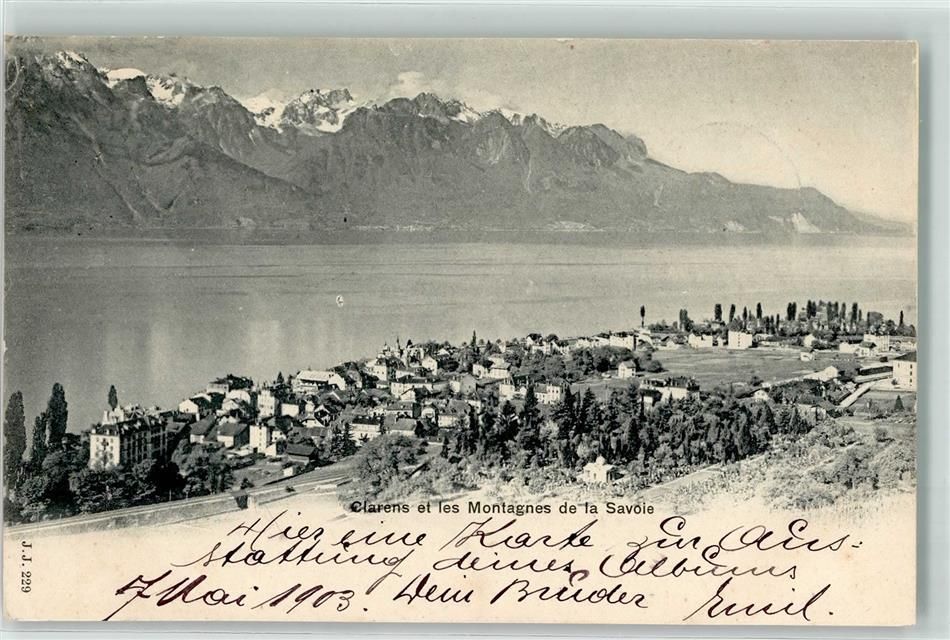 Clarens et les Montagnes de la Savoie
J. J. 229
Hier eine Karte zur Aus=
stattung deines Albums
7 Mai 1903. Dein Bruder Emil.